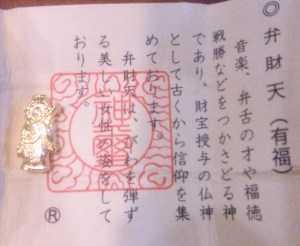 ◎弁財天（有福）
音楽、弁舌の才や福徳
戦勝などをつかさどる神
であり、財宝授与の仏神
として古くから信仰を集
めております。
弁財天は、びわを弾ず
る美しい女性の姿をして
おります。
®